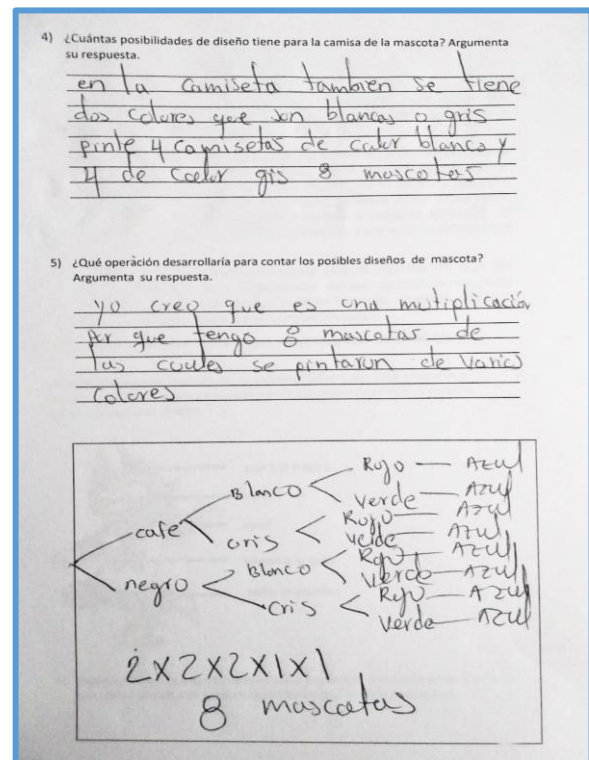 4) ¿Cuántas posibilidades de diseño tiene para la camisa de la mascota? Argumenta
su respuesta.
en la camiseta tambien se tiene
dos colores que son blancas o gris
pinte 4 camisetas de color blanco y
4 de coelor gis 8 mascotas
5) ¿Qué operación desarrollaría para contar los posibles diseños de mascota?
Argumenta su respuesta.
yo creo que es una mutiplicación
por que tengo 8 mascotas de
las cuales se pintarun de varios
colores
Blanco Rojo — Azul
Verde — Azul
cafe Gris Rojo — Azul
Verde — Azul
negro Blanco Rojo — Azul
Verde — Azul
Gris Rojo — Azul
Verde — Azul
2X2X2X1X1
8 mascotas